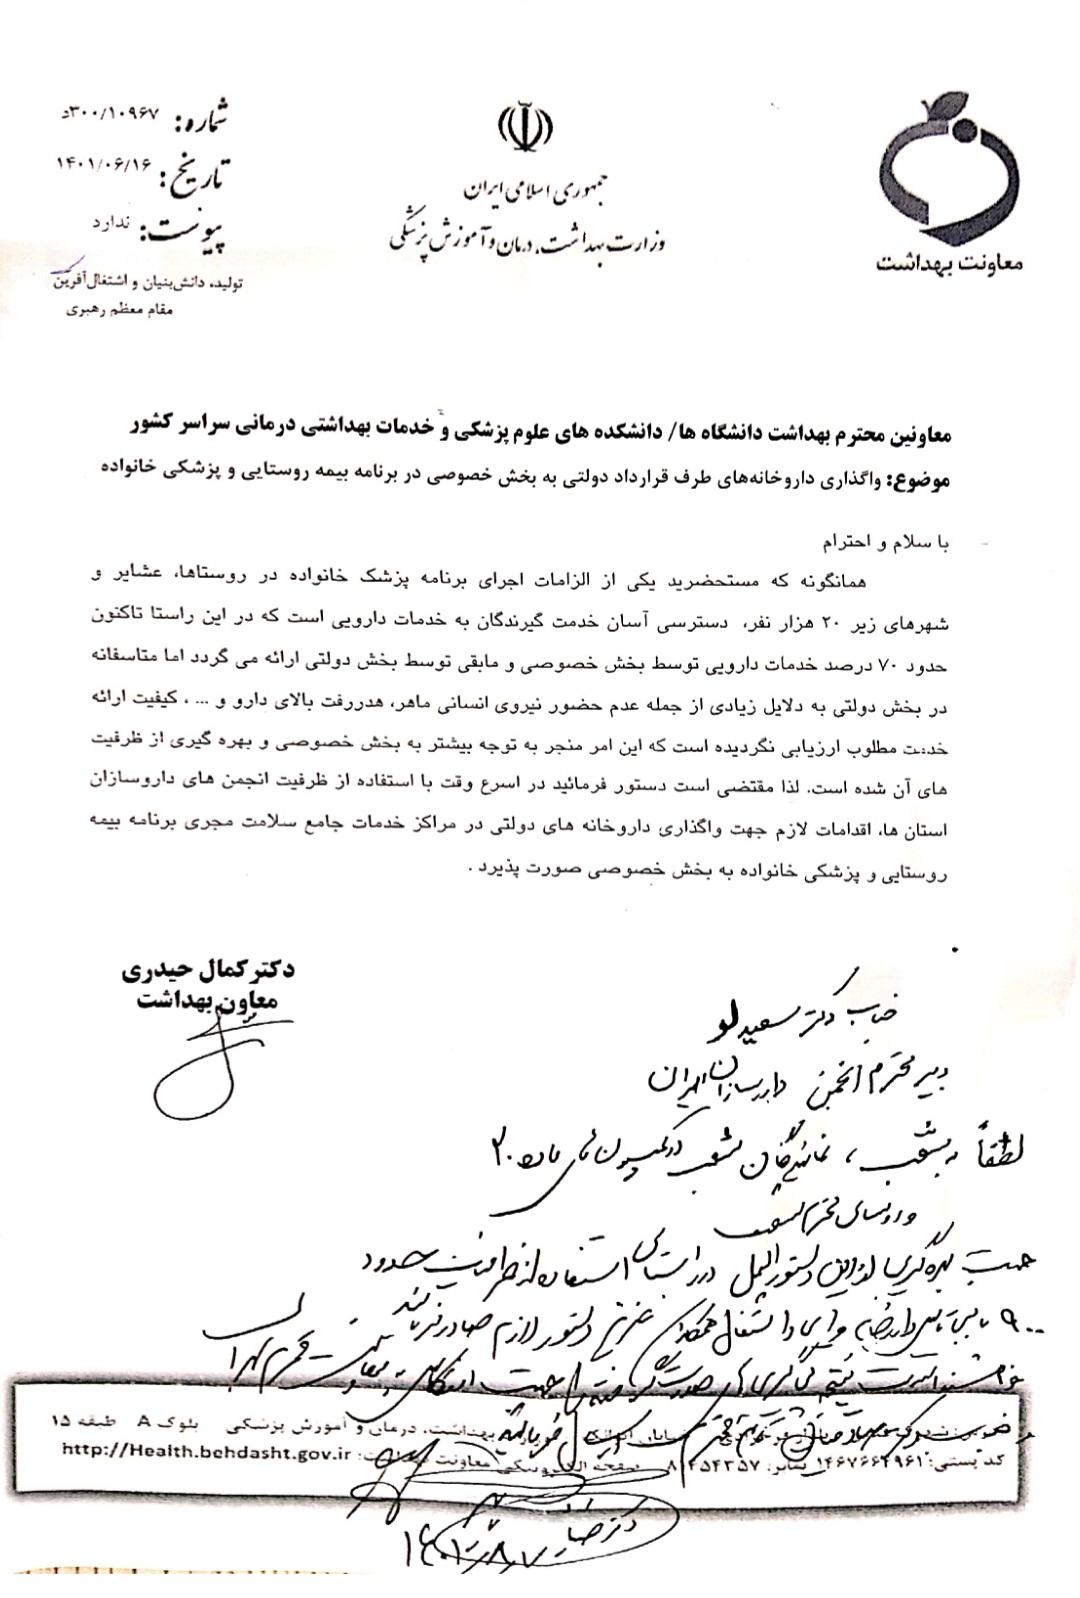 شماره: ۳۰۰/۱۰۹۶۷د
تاریخ: ۱۴۰۱/۰۶/۱۶
پیوست: ندارد
تولید، دانش‌بنیان و اشتغال‌آفرین
مقام معظم رهبری
جمهوری اسلامی ایران
وزارت بهداشت، درمان و آموزش پزشکی
معاونت بهداشت
معاونین محترم بهداشت دانشگاه ها/ دانشکده های علوم پزشکی و خدمات بهداشتی درمانی سراسر کشور
موضوع: واگذاری داروخانه‌های طرف قرارداد دولتی به بخش خصوصی در برنامه بیمه روستایی و پزشکی خانواده
با سلام و احترام
همانگونه که مستحضرید یکی از الزامات اجرای برنامه پزشک خانواده در روستاها، عشایر و
شهرهای زیر ۲۰ هزار نفر، دسترسی آسان خدمت گیرندگان به خدمات دارویی است که در این راستا تاکنون
حدود ۷۰ درصد خدمات دارویی توسط بخش خصوصی و مابقی توسط بخش دولتی ارائه می گردد اما متاسفانه
در بخش دولتی به دلایل زیادی از جمله عدم حضور نیروی انسانی ماهر، هدررفت بالای دارو و ... ، کیفیت ارائه
خدمت مطلوب ارزیابی نگردیده است که این امر منجر به توجه بیشتر به بخش خصوصی و بهره گیری از ظرفیت
های آن شده است. لذا مقتضی است دستور فرمائید در اسرع وقت با استفاده از ظرفیت انجمن های داروسازان
استان ها، اقدامات لازم جهت واگذاری داروخانه های دولتی در مراکز خدمات جامع سلامت مجری برنامه بیمه
روستایی و پزشکی خانواده به بخش خصوصی صورت پذیرد .
دکتر کمال حیدری
معاون بهداشت
جناب دکتر سعیدلو
دبیر محترم انجمن داروسازان ایران
لطفاً به شعب، نمایندگان شعب در کمیسیون های ماده ۲۰
و روسای محترم شعب
جهت بهره گیری از این دستورالعمل در راستای استفاده از ظرفیت حدود
۹۰۰ همکاران عزیز دستور لازم صادر فرمائید
بهداشت، درمان و آموزش پزشکی بلوک A طبقه ۱۵
کد پستی: ۱۴۶۷۶۶۴۹۶۱ نمابر: ۸۱۴۵۴۳۵۷ صفحه الکترونیکی معاونت بهداشت: http://Health.behdasht.gov.ir